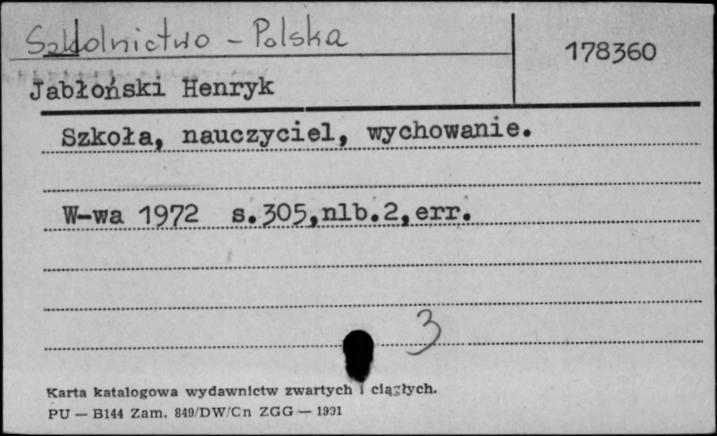 Szkolnictwo - Polska
178360
Jabłoński Henryk
Szkoła, nauczyciel, wychowanie.
W-wa 1972 s.305,nlb.2,err.
3
Karta katalogowa wydawnictw zwartych i ciągłych.
PU — B144 Zam. 849/DW/Cn ZGG — 1991